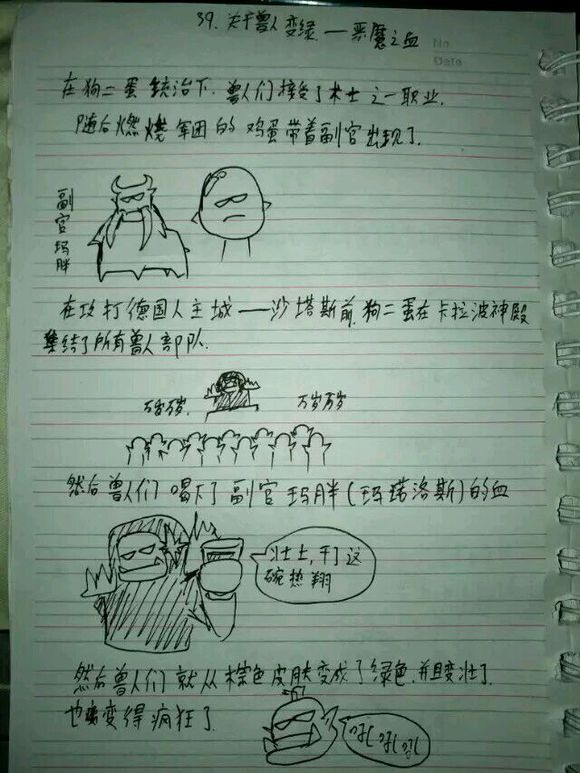 39. 关于兽人变绿 — 恶魔之血
No
Date
在狗二蛋统治下, 兽人们接受了术士之一职业,
随后燃烧军团的鸡蛋带着副官出现了.
副官玛胖
在攻打德国人主城——沙塔斯前,狗二蛋在卡拉波神殿
集结了所有兽人部队.
万岁万岁,
万岁万岁
然后兽人们喝下了副官玛胖(玛诺洛斯)的血
壮士,干了这
碗热翔
然后兽人们就从棕色皮肤变成了绿色.并且变壮了
也变得疯狂了
吼吼吼